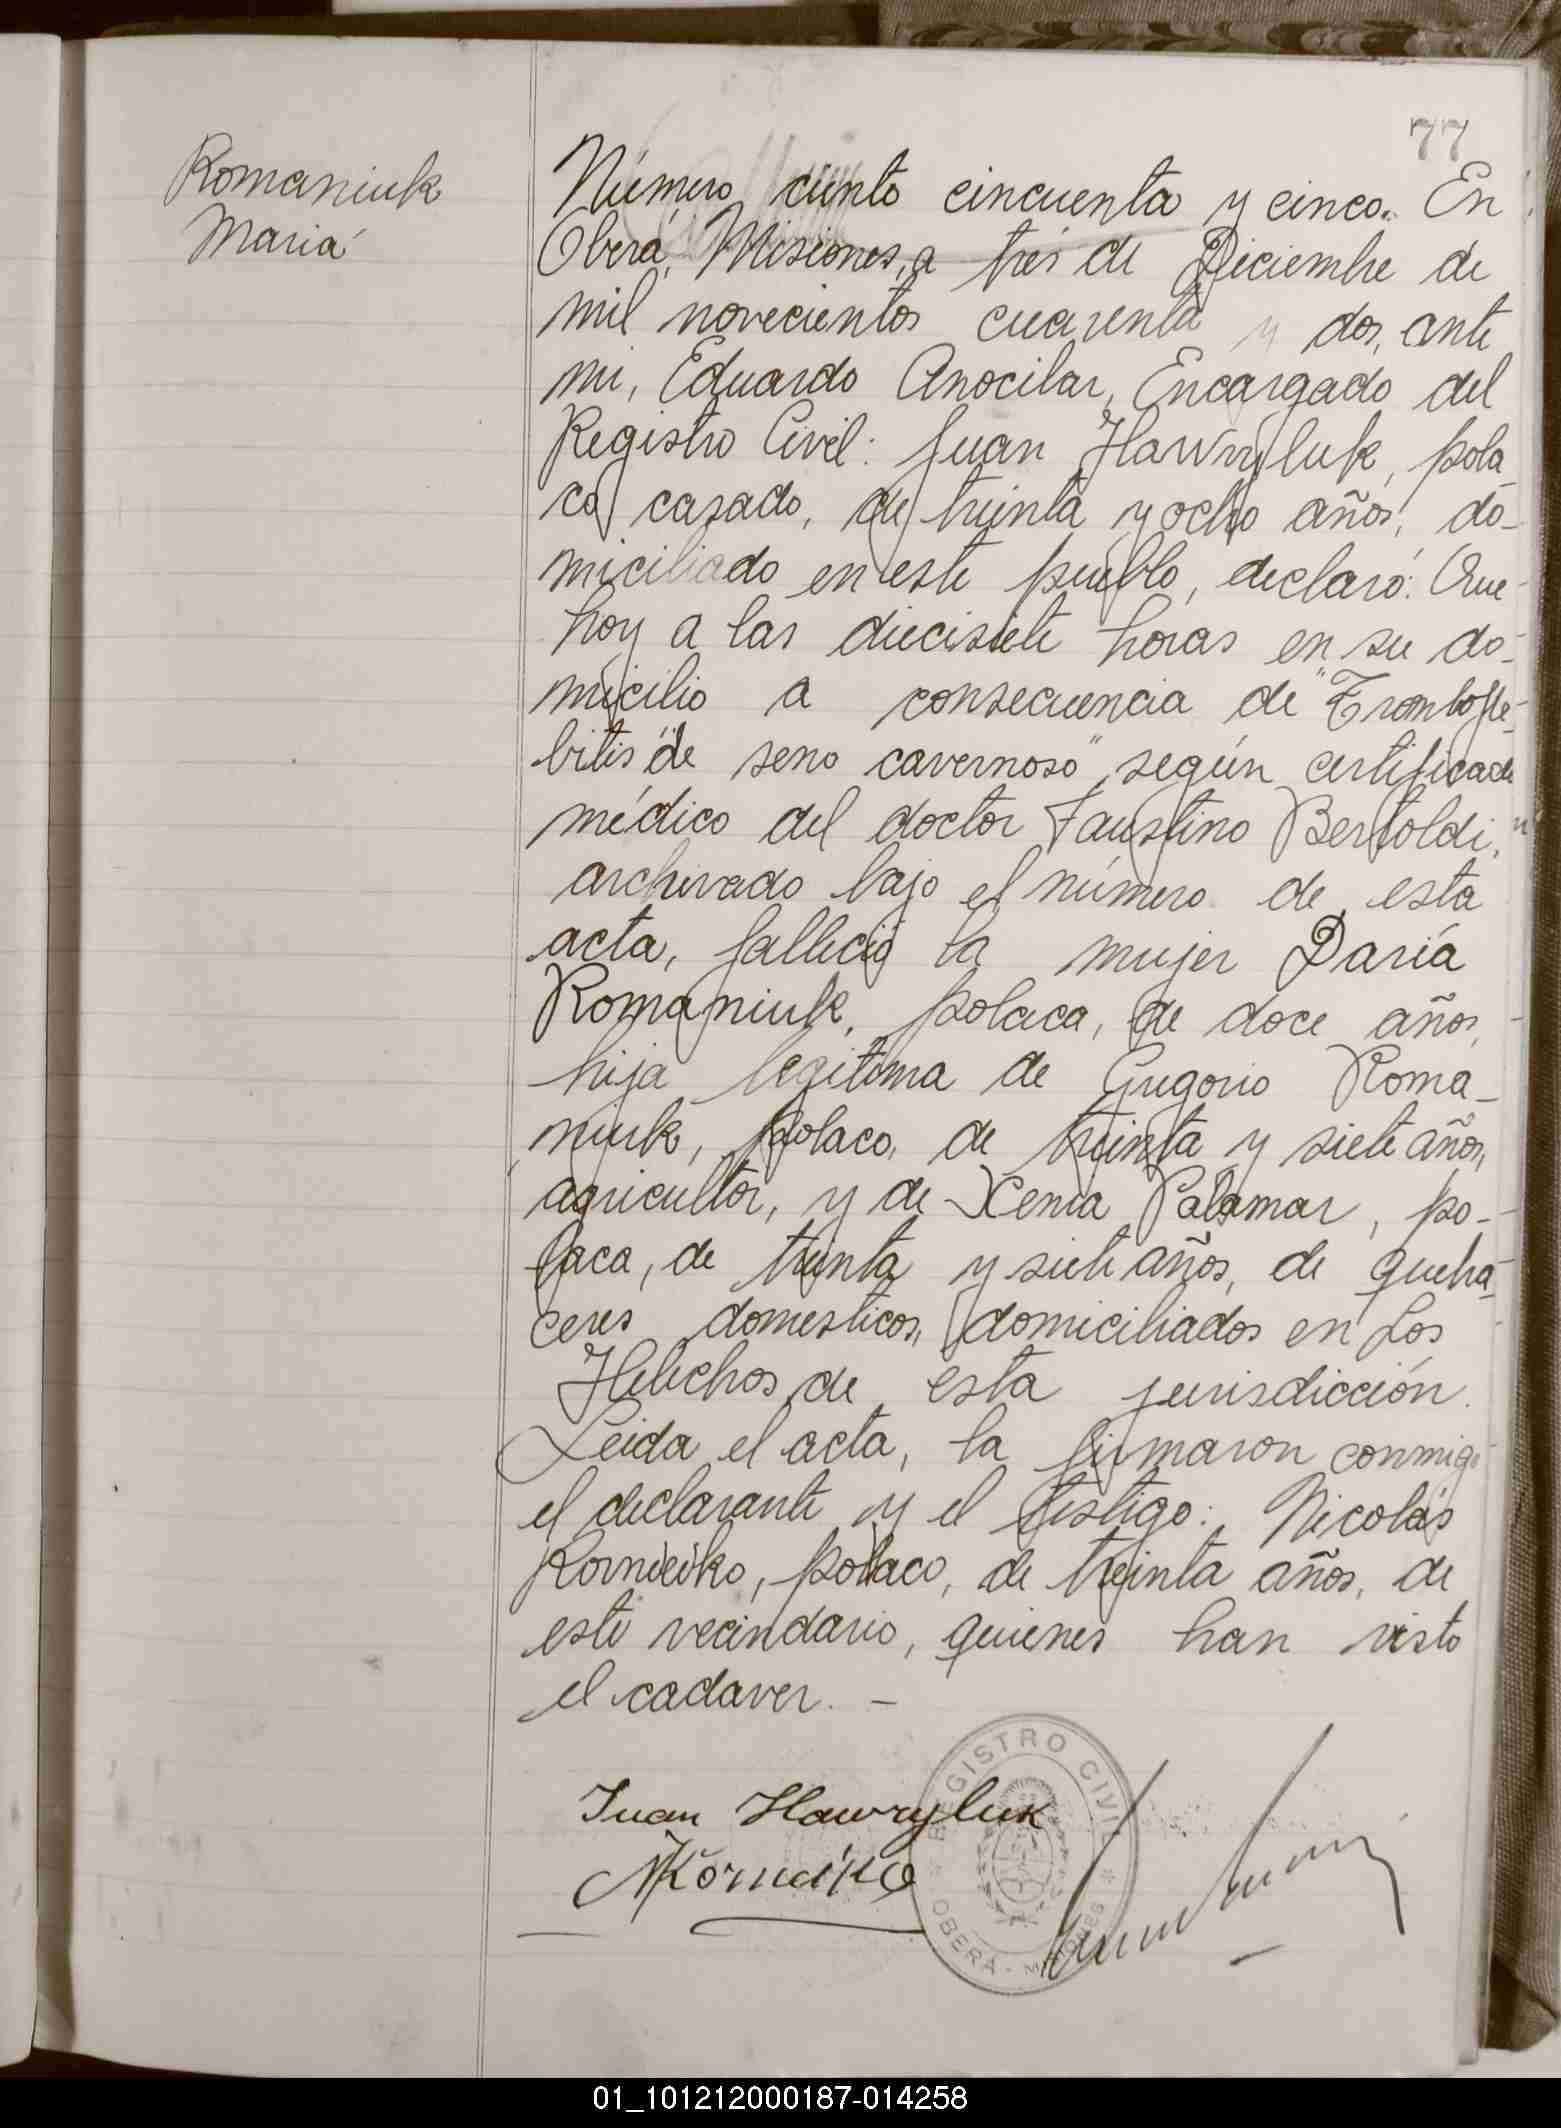 77
Romaniuk
Maria
Número ciento cincuenta y cinco. En
Oberá, Misiones, a tres de Diciembre de
mil novecientos cuarenta y dos, ante
mi, Eduardo Anocilar, Encargado del
Registro Civil: Juan Hawryluk, pola
co, casado, de treinta y ocho años, do-
miciliado en este pueblo, declaró: Que
hoy a las diecisiete horas en su do-
micilio a consecuencia de "Trombofle-
bitis" de seno cavernoso", según certificado
médico del doctor Faustino Bertoldi,
archivado bajo el número de esta
acta, falleció la mujer Daría
Romaniuk, polaca, de doce años,
hija legitima de Gregorio Roma-
niuk, polaco, de treinta y siete años,
agricultor, y de Xenia Palamar, po-
laca, de treinta y siete años, de queha-
ceres domesticos, domiciliados en Los
Helechos de esta jurisdicción.
Leida el acta, la firmaron conmigo
el declarante y el testigo: Nicolás
polaco, de treinta años, de
este vecindario, quienes han visto
el cadaver. -
Juan Hawryluk
REGISTRO CIVIL
OBERÁ - MISIONES
01_101212000187-014258